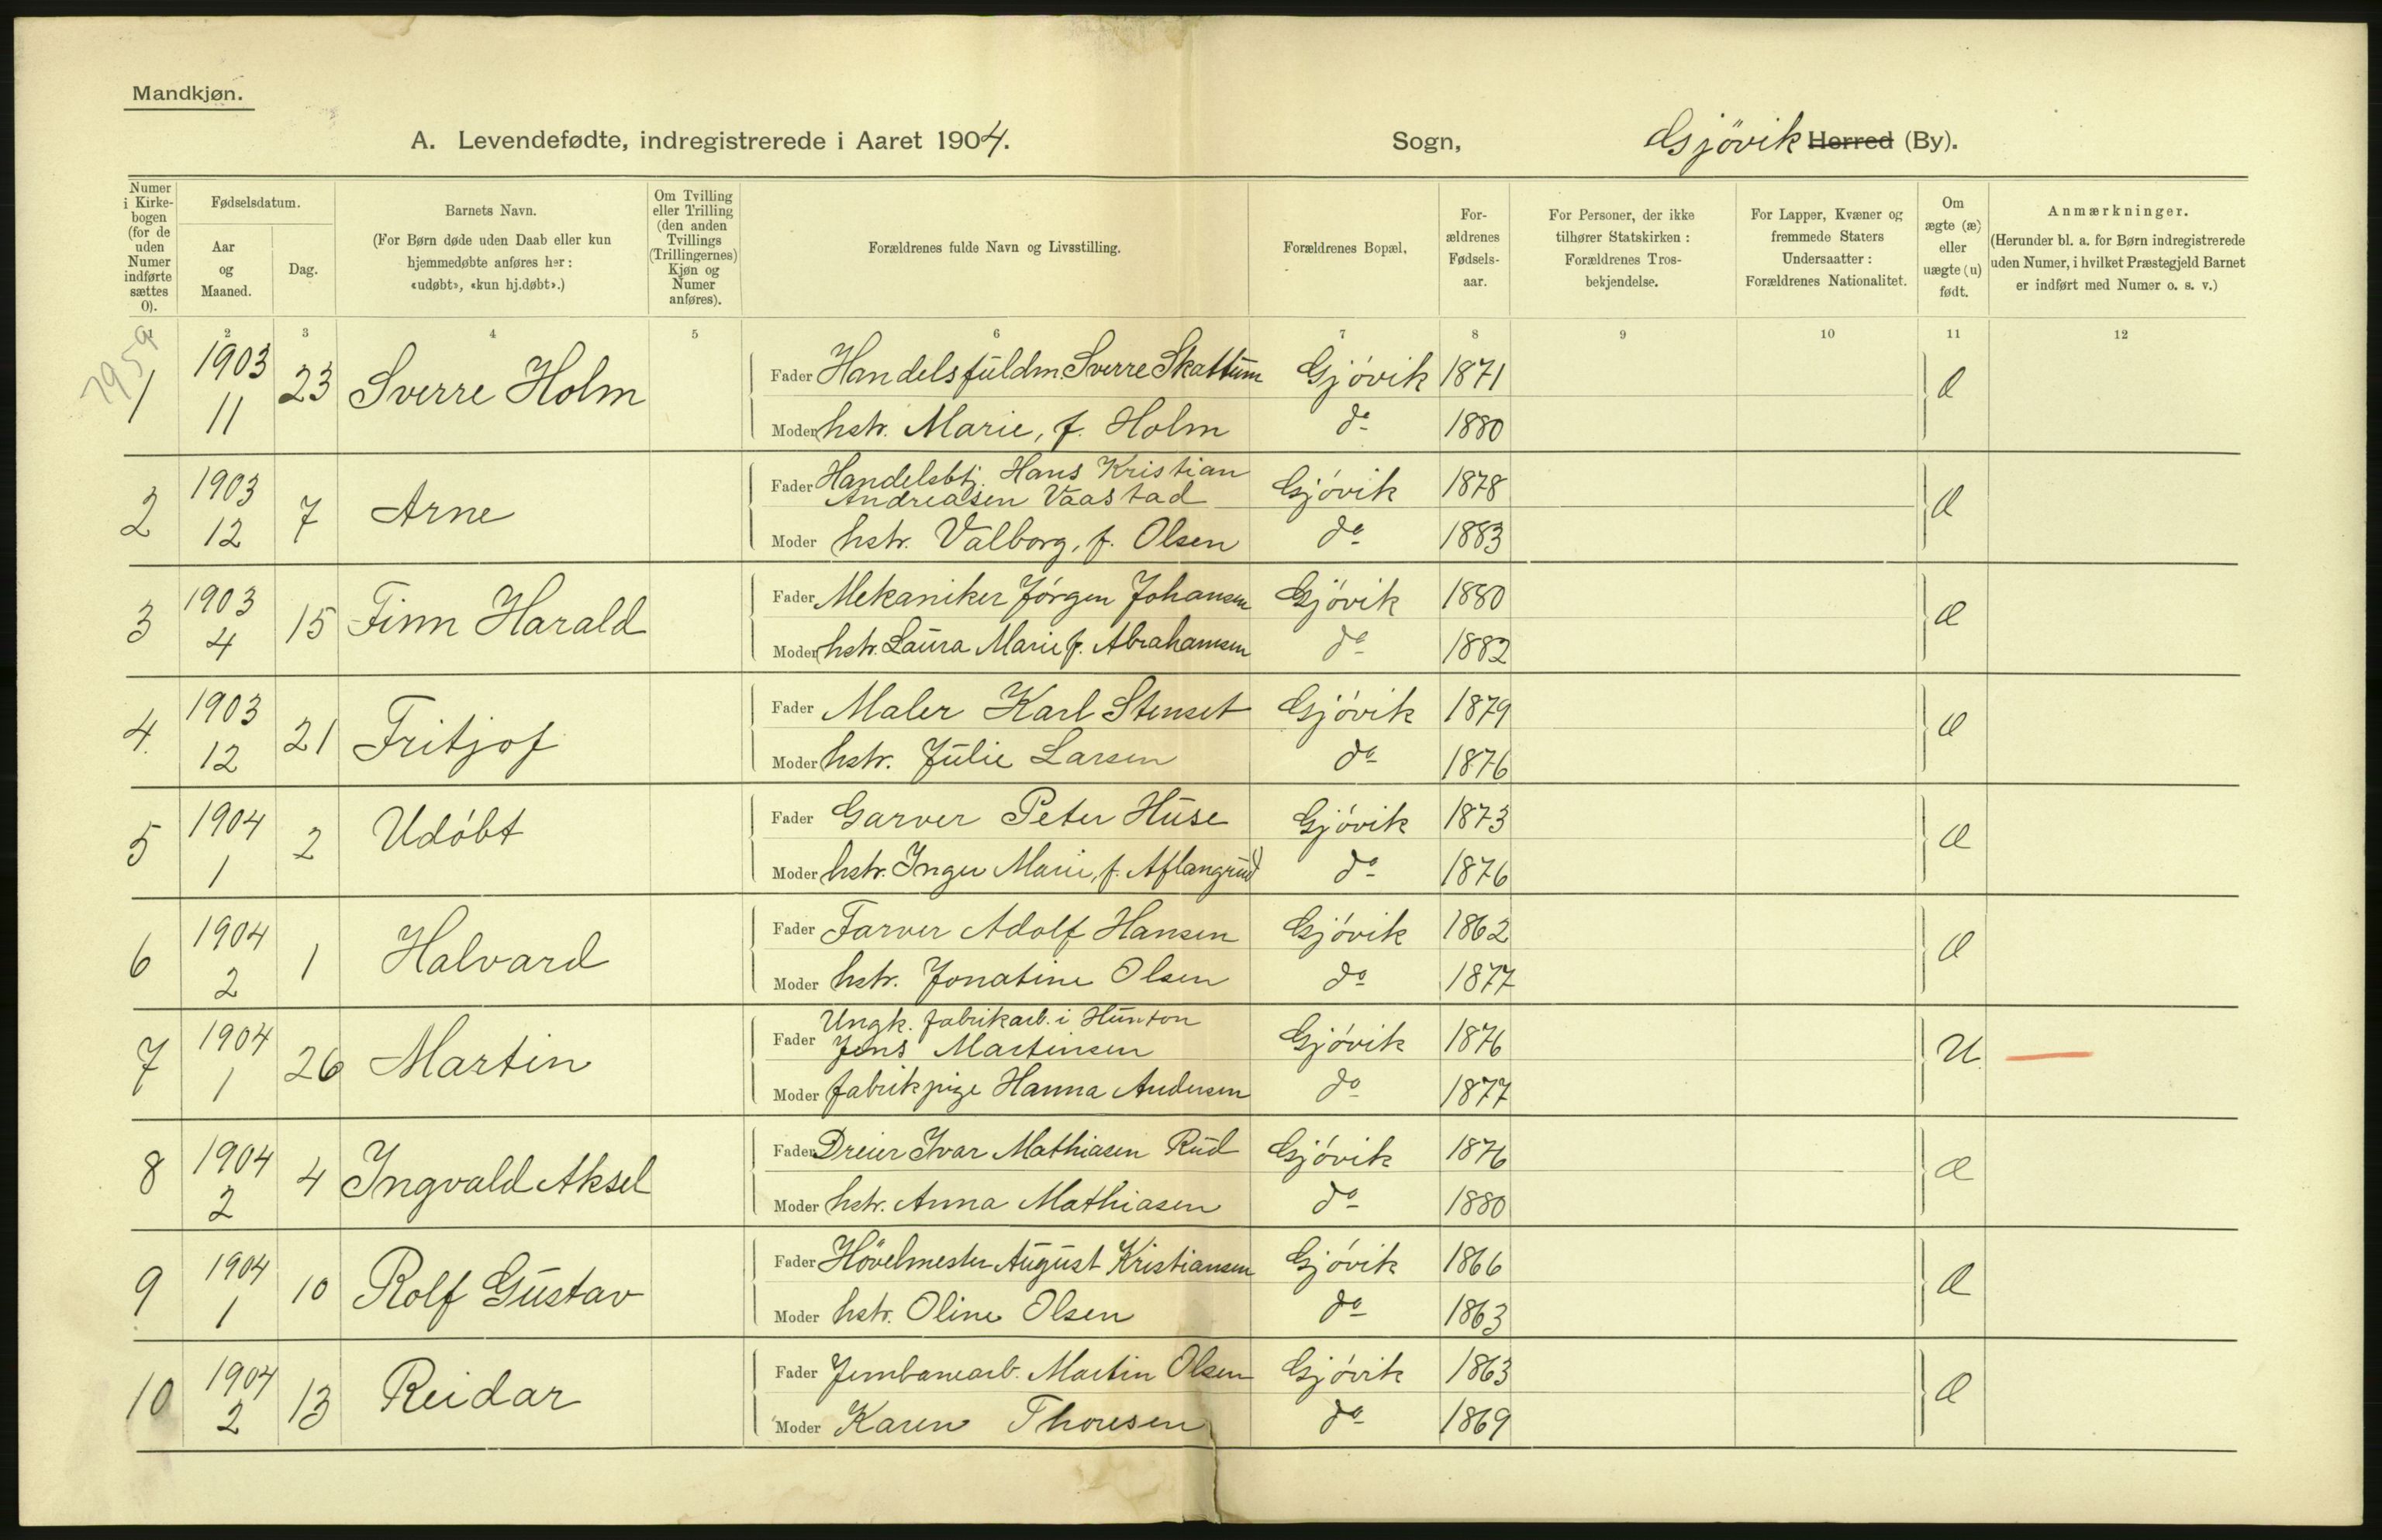 Mandkjøn.
A. Levendefødte, indregistrerede i Aaret 1904. Sogn, Gjövik Herred (By).
Numer i Kirkebogen (for de uden Numer indførte sættes 0).
Fødselsdatum.
Aar og Maaned.
Dag.
Barnets Navn.
(For Børn døde uden Daab eller kun hjemmedøbte anføres her: «udøbt», «kun hj.døbt».)
Om Tvilling eller Trilling (den anden Tvillings (Trillingernes) Kjøn og Numer anføres).
Forældrenes fulde Navn og Livsstilling.
Forældrenes Bopæl.
Forældrenes Fødselsaar.
For Personer, der ikke tilhører Statskirken: Forældrenes Trosbekjendelse.
For Lapper, Kvæner og fremmede Staters Undersaatter: Forældrenes Nationalitet.
Om ægte (æ) eller uægte (u) født.
Anmærkninger.
(Herunder bl. a. for Børn indregistrerede uden Numer, i hvilket Præstegjeld Barnet er indført med Numer o. s. v.)
1 2 3 4 5 6 7 8 9 10 11 12
7959
1 1903 11 23 Sverre Holm Fader Handelsfuldm. Sverre Skattum Gjövik 1871 Æ
Moder hstr. Marie, f. Holm do 1880
2 1903 12 7 Arne Fader Handelsbtj. Hans Kristian
Andreasen Vaastad Gjövik 1878 Æ
Moder hstr. Valborg, f. Olsen do 1883
3 1903 4 15 Finn Harald Fader Mekaniker Jörgen Johansen Gjövik 1880 Æ
Moder hstr. Laura Marie f. Abrahamsen do 1882
4. 1903 12 21 Fritjof Fader Maler Karl Stenset Gjövik 1879 Æ
Moder hstr. Julie Larsen do 1876
5 1904 1 2 Udöbt Fader Garver Peter Huse Gjövik 1873 Æ
Moder hstr. Inger Marie, f. Aflangrud do 1876
6 1904 2 1 Halvard Fader Farver Adolf Hansen Gjövik 1862 Æ
Moder hstr. Jonatine Olsen do 1877
7 1904 1 26 Martin Fader Ungk. fabrikarb. i Hunton
Jens Martinsen Gjövik 1876 U.
Moder fabrikpige Hanna Andersen do 1877
8 1904 2 4 Ingvald Aksel Fader Dreier Ivar Mathiasen Rud Gjövik 1876 Æ
Moder hstr. Anna Mathiasen do 1880
9 1904 1 10 Rolf Gustav Fader Hövelmester August Kristiansen Gjövik 1866 Æ
Moder hstr. Oline Olsen do 1863
10 1904 2 13 Reidar Fader Jernbanearb. Martin Olsen Gjövik 1863 Æ
Moder Karen Thoresen do 1869